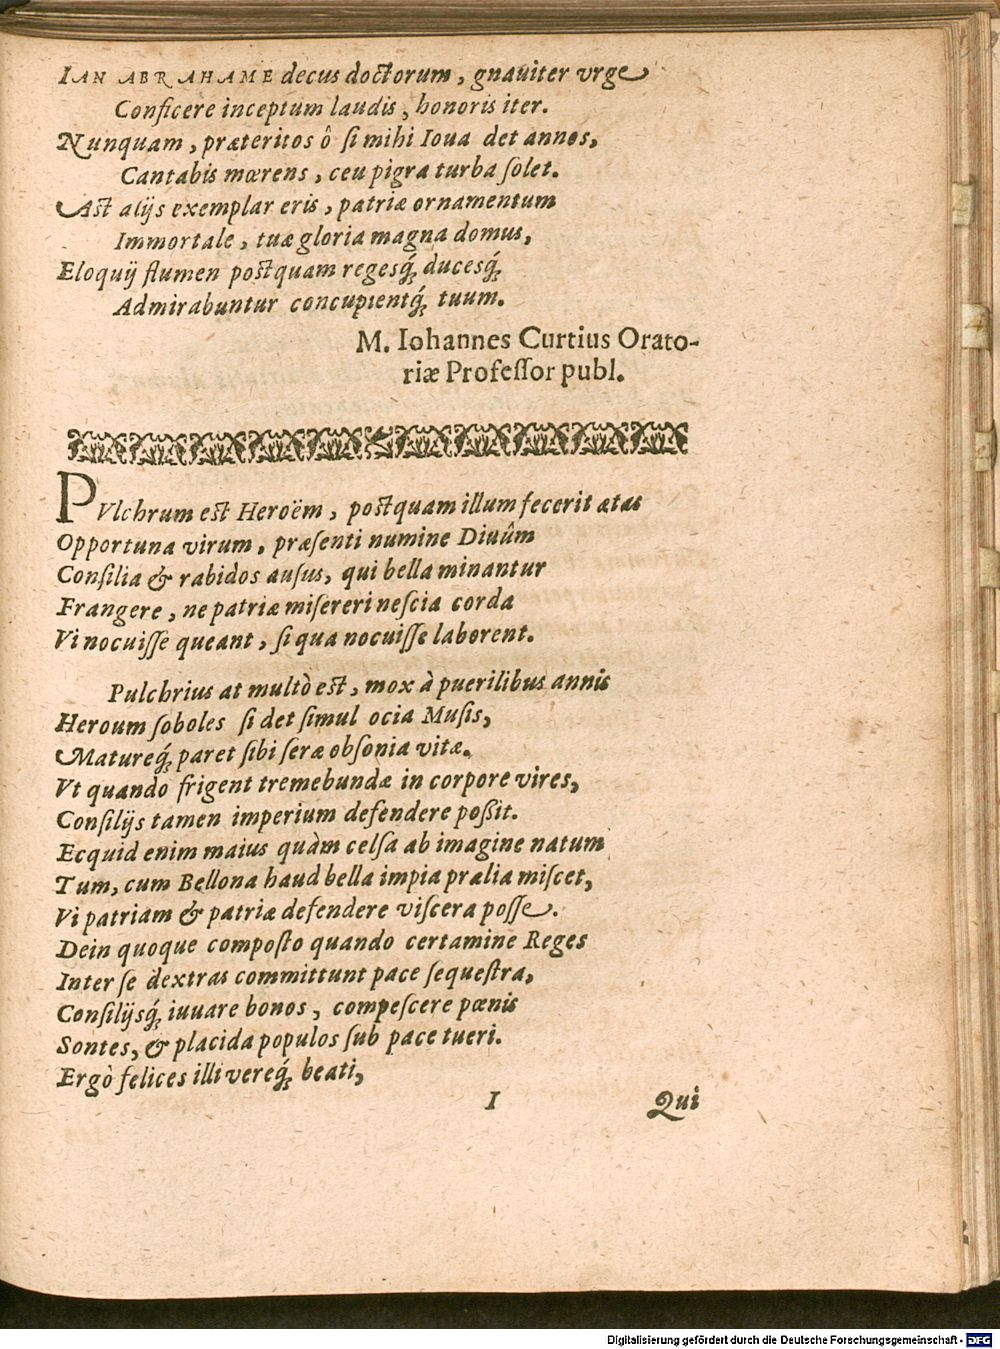 IAN ABRAHAME decus doctorum, gnauiter vrge
Conficere inceptum laudis, honoris iter.
Nunquam, præteritos ô ſi mihi Ioua det annos,
Cantabis mœrens, ceu pigra turba ſolet.
Aſt alijs exemplar eris, patriæ ornamentum
Immortale, tuæ gloria magna domus,
Eloquij flumen poſtquam regesq́; ducesq́;
Admirabuntur concupientq́; tuum.
M. Iohannes Curtius Orato-
riæ Profeſſor publ.
PVlchrum eſt Heroëm, poſtquam illum fecerit ætas
Opportuna virum, præſenti numine Diuûm
Conſilia & rabidos auſus, qui bella minantur
Frangere, ne patriæ miſereri neſcia corda
Vi nocuiſſe queant, ſi qua nocuiſſe laborent.
Pulchrius at multò eſt, mox à puerilibus annis
Heroum ſoboles ſi det ſimul ocia Muſis,
Matureq́; paret ſibi ſeræ obſonia vitæ.
Vt quando frigent tremebundæ in corpore vires,
Conſilijs tamen imperium defendere poßit.
Ecquid enim maius quàm celſa ab imagine natum
Tum, cum Bellona haud bella impia prælia miſcet,
Vi patriam & patriæ defendere viſcera poſſe.
Dein quoque compoſto quando certamine Reges
Inter ſe dextras committunt pace ſequeſtra,
Conſilijsq́; iuuare bonos, compeſcere pœnis
Sontes, & placida populos ſub pace tueri.
Ergò felices illi vereq́; beati,
I Qui
Digitalisierung gefördert durch die Deutsche Forschungsgemeinschaft - DFG